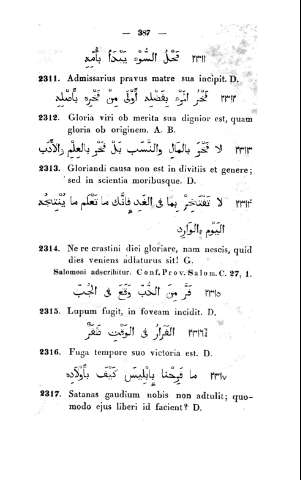 — 387 —
٢٣١١ فَحْلُ السُّوْءِ يَبْدَأُ بِأُمِّهِ
2311. Admissarius pravus matre sua incipit. D.
٢٣١٢ فَخْرُ ٱلْمَرْءِ بِفَضْلِهِ أَوْلَى مِنْ فَخْرِهِ بِأَصْلِهِ
2312. Gloria viri ob merita sua dignior est, quam
gloria ob originem. A. B.
٢٣١٣ لا فَخْرَ بِالمَالِ وَالنَّسَبِ بَلْ فَخْرٌ بِالعِلْمِ وَالأَدَبِ
2313. Gloriandi causa non est in divitiis et genere;
sed in scientia moribusque. D.
٢٣١٤ لا تَفْتَخِرْ بِمَا فِى الغَدِ فَإِنَّكَ مَا تَعْلَم مَا
اليَوْمِ الوَارِدِ
2314. Ne re crastini diei gloriare, nam nescis, quid
dies veniens adlaturus sit! G.
Salomoni adscribitur. Conf. Prov. Salom. C. 27, 1.
٢٣١٥ فَرَّ مِنَ الذِّئْبِ وَقَعَ فِى الْجُبِّ
2315. Lupum fugit, in foveam incidit. D.
٢٣١٦ الفِرَارُ فِى الوَقْتِ ظَفَرٌ
2316. Fuga tempore suo victoria est. D.
٢٣١٧ مَا فَرِحْنَا بِإِبْلِيسَ كَيْفَ بِأَوْلَادِهِ
2317. Satanas gaudium nobis non adtulit; quo-
modo ejus liberi id facient? D.